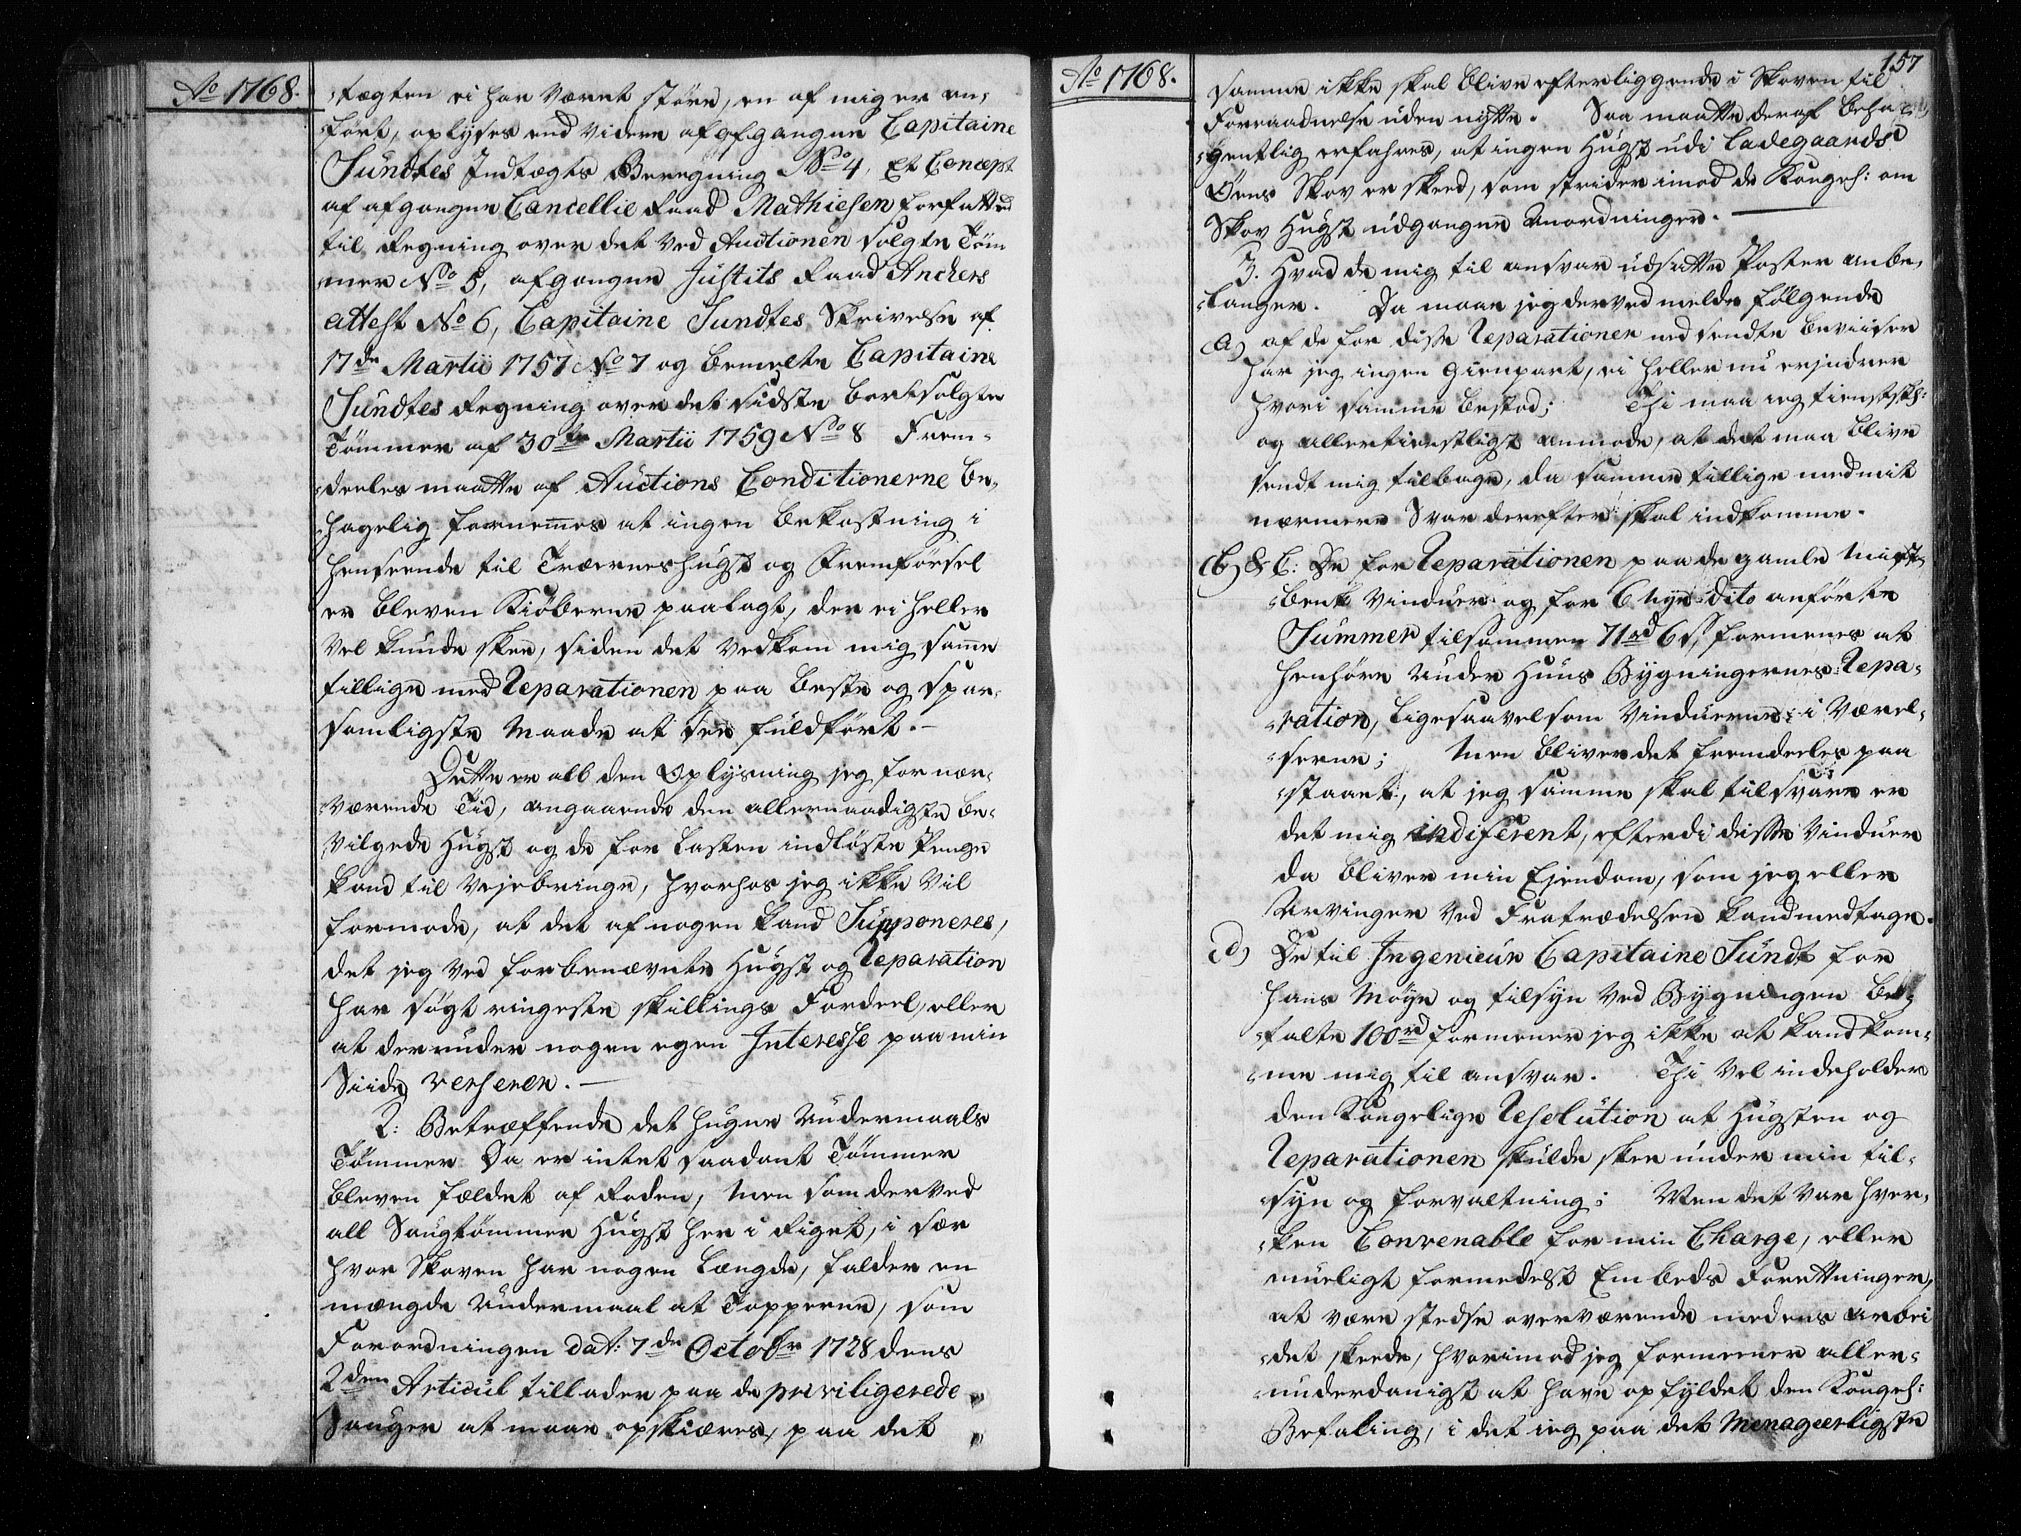 Ao 1768.
-tægten ei har været større, en af mig er an-
-ført, oplyses end videre af afgangne Capitaine
Sundtes Indtægts Beregning No 4, Et Concept
af afgangne Cancellie Raad Mathiesen forfatted
til Regning over det ved Auctionen solgte Tøm-
-mer No 5, afgangne Justits Raad Anchers
attest No 6, Capitaine Sundtes Skrivelse af
17de Martii 1757 No 7 og bemelte Capitaine
Sundtes Regning over det sidste bortsolgte
Tømmer af 30te Martii 1759 No 8 Frem-
-deeles maatte af Auctions Conditionerne be-
-hagelig fornemmes at ingen Bekostning i
henseende til Træernes hugst og Fremførsel
er bleven Kiøberne paalagt, der ei heller
vel kunde skee, siden det vedkom mig samme
tillige med Reparationen paa beste og spar-
-somligste Maade at see fuldført. -
Dette er all den Oplysning jeg for nær-
-værende Tid, angaaende den allernaadigste be-
-vilgede Hugst og de for Lasten indløste Penge
kand til Vejebringe, hvorhos jeg ikke vil
formode, at det af nogen kand Supponeres,
det jeg ved forbenævnte Hugst og Reparation
har søgt ringeste skillings Fordeel, eller
at derunder nogen egen Interesse paa min
Siide verserer. -
2: Betræffende det hugne Undermaals
Tømmer Da er intet saadant Tømmer
bleven fældet af Roden, Men som derved
all Saugtømmer Hugst her i Riget, i sær
hvor Skoven har nogen Længde, falder en
mængde Undermaal at Topperne, som
Forordningen dat: 7de Octobr 1728 dens
2den Articul tillader paa de priviligerede
Sauger at maae opskiæres, paa det
Ao 1768.
157
samme ikke skal blive efterliggende i Skoven til
Forraadnelse uden nytte. Saa maatte deraf beha-
-gentlig erfahres, at ingen Hugst udi Ladegaards
Øens Skov er skeed, som strider imod de Kongel: om
Skov Hugst udgangne Anordninger. -
3. Hvad de mig til ansvar udsatte Poster anbe-
-langer. Da maae jeg derved melde følgende
a) af de for disse Reparationer nedsendte beviiser
har jeg ingen Gienpart, ei heller nu erindrer
hvori samme bestod; Thi maa jeg tienstskl:
og allertienstligst anmode, at det maa blive
sendt mig tilbage, da samme tillige med mit
nærmere Svar derefter skal indkomme.
b) & C: De for Reparationen paa de gamle Mist-
-benk Vinduer og for 6 nye dito anførte
Summer tilsammen 71rd 6s, formenes at
henhøre under Huus Bygningernes Repa-
-ration, ligesaavel som Vinduerne i Værel-
-serne; Men bliver det fremdeeles paa
-staaet, at jeg samme skal tilsvare er
det mig indiferent, efterdi disse Vinduer
da bliver min Ejendom, som jeg eller
Arvinger ved Fratrædelsen kand medtage.
d) De til Ingenieur Capitaine Sundt for
hans Møye og tilsyn ved Bygningen be-
-talte 100rd formener jeg ikke at kand kom-
-me mig til ansvar. Thi vel indeholder
den Kongelige Resolution at Hugsten og
Reparationen skulde skee under min til-
-syn og forvaltning; Men det var hver-
-ken Convenable for min Charge, eller
mueligt formedelst Embeds Forretninger,
at være stedse overværende medens arbei
-det skeede, hvorimod jeg formeener aller-
-underdanigst at have opfyldet den Kongel:
Befaling, i det jeg paa det Menageerligste